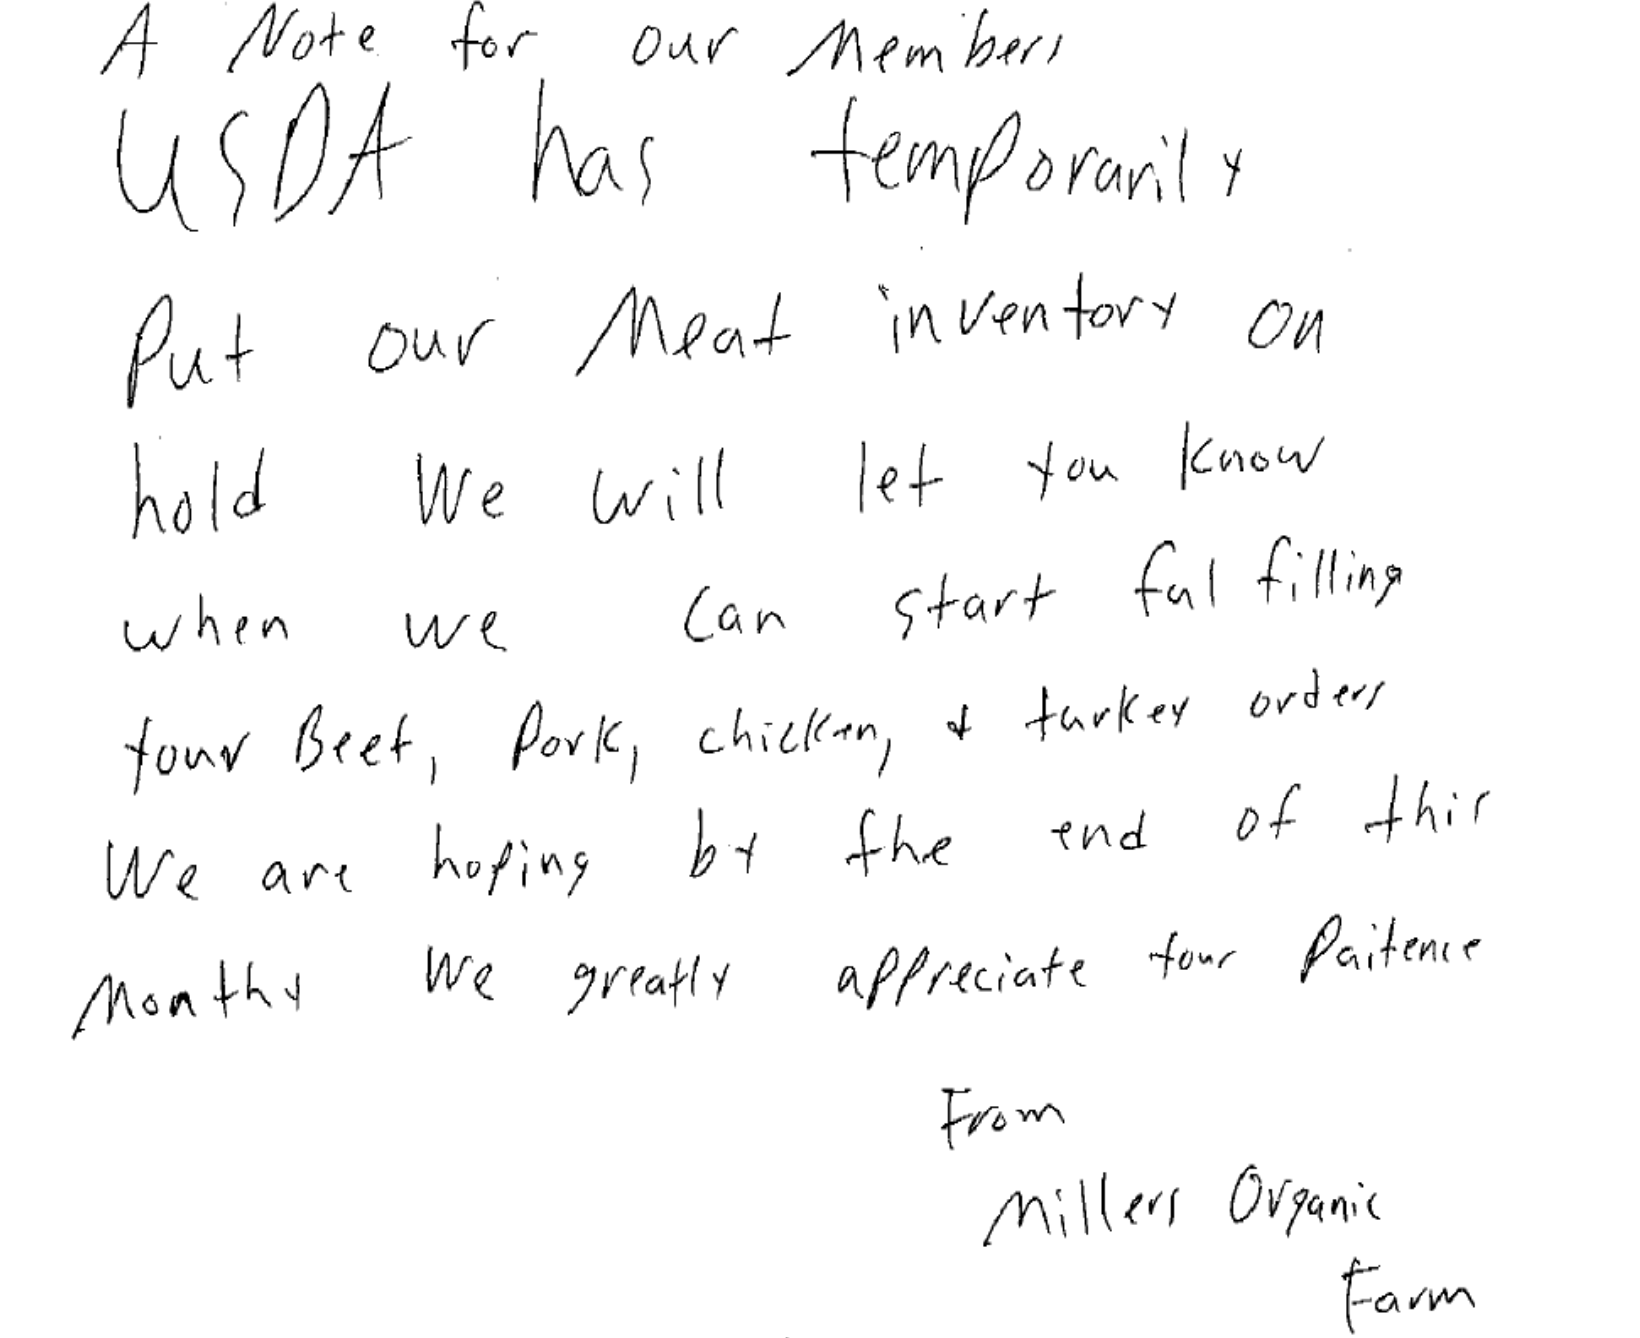 A Note for our Members
USDA has temporarily
Put our Meat inventory on
hold We will let you know
when we can start fulfilling
your Beef, Pork, chicken, & turkey orders
We are hoping by the end of this
Monthy We greatly appreciate your Paitence
From
Millers Organic
Farm